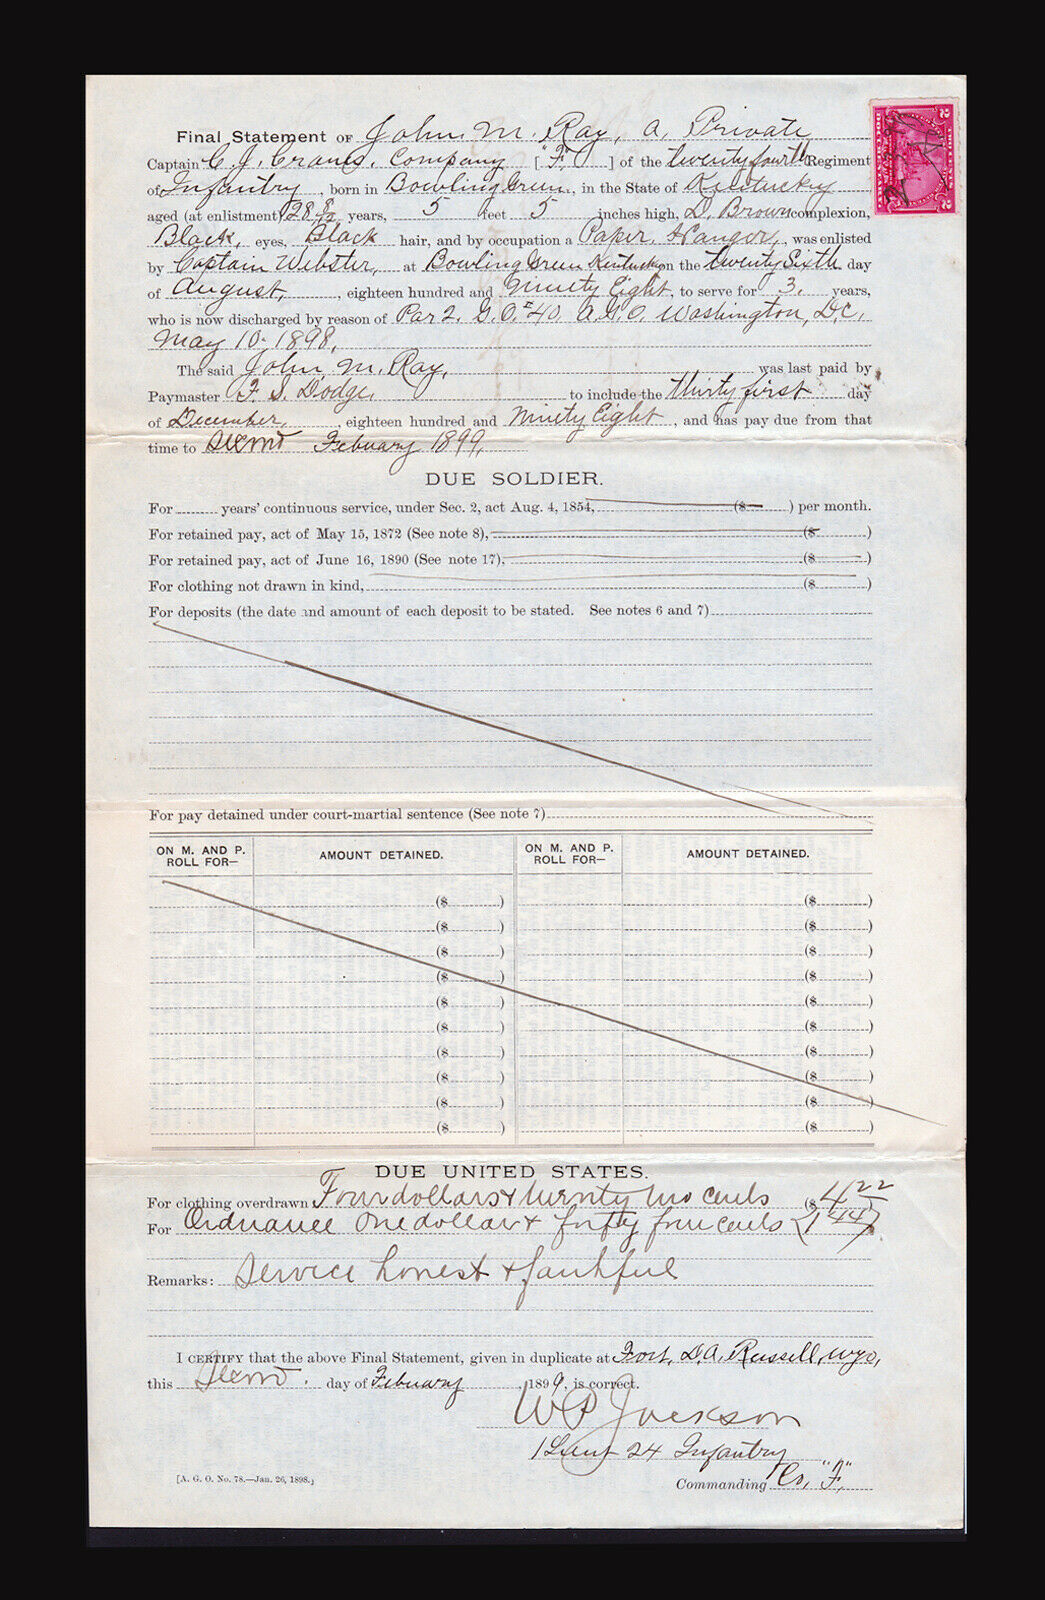 Final Statement OF John M. Ray, a Private
Captain C. J. Cranes, Company ["F"] of the twenty fourth Regiment
of Infantry, born in Bowling Green, in the State of Kentucky
aged (at enlistment) 28 8/12 years, 5 feet 5 inches high, D. Brown complexion,
Black, eyes, Black hair, and by occupation a Paper Hanger, was enlisted
by Captain Webster, at Bowling Green Kentucky on the twenty Sixth day
of August, eighteen hundred and Ninety Eight, to serve for 3. years,
who is now discharged by reason of Par 2. G.O. #40. A.G.O. Washington, D.C.
May 10. 1898.
The said John M. Ray, was last paid by
Paymaster F. S. Dodge, to include the thirty first day
of December, eighteen hundred and Ninety Eight, and has pay due from that
time to Second February 1899,
DUE SOLDIER.
For years' continuous service, under Sec. 2, act Aug. 4, 1854, ($ ) per month.
For retained pay, act of May 15, 1872 (See note 8), ($ )
For retained pay, act of June 16, 1890 (See note 17), ($ )
For clothing not drawn in kind, ($ )
For deposits (the date and amount of each deposit to be stated. See notes 6 and 7)
For pay detained under court-martial sentence (See note 7)
ON M. AND P. ROLL FOR— AMOUNT DETAINED. ON M. AND P. ROLL FOR— AMOUNT DETAINED.
($ ) ($ )
($ ) ($ )
($ ) ($ )
($ ) ($ )
($ ) ($ )
($ ) ($ )
($ ) ($ )
($ ) ($ )
($ ) ($ )
($ ) ($ )
DUE UNITED STATES.
For clothing overdrawn Four dollars & twenty two cents ($ 4 22
For Ordnance One dollar & forty four cents (1 44)
Remarks: Service honest & faithful
I CERTIFY that the above Final Statement, given in duplicate at Fort D.A. Russell, Wyo,
this Second. day of February, 1899, is correct.
W P Jackson
1 Lieut 24 Infantry
Commanding Co, "F"
[A. G. O. No. 78.—Jan. 26, 1898.]